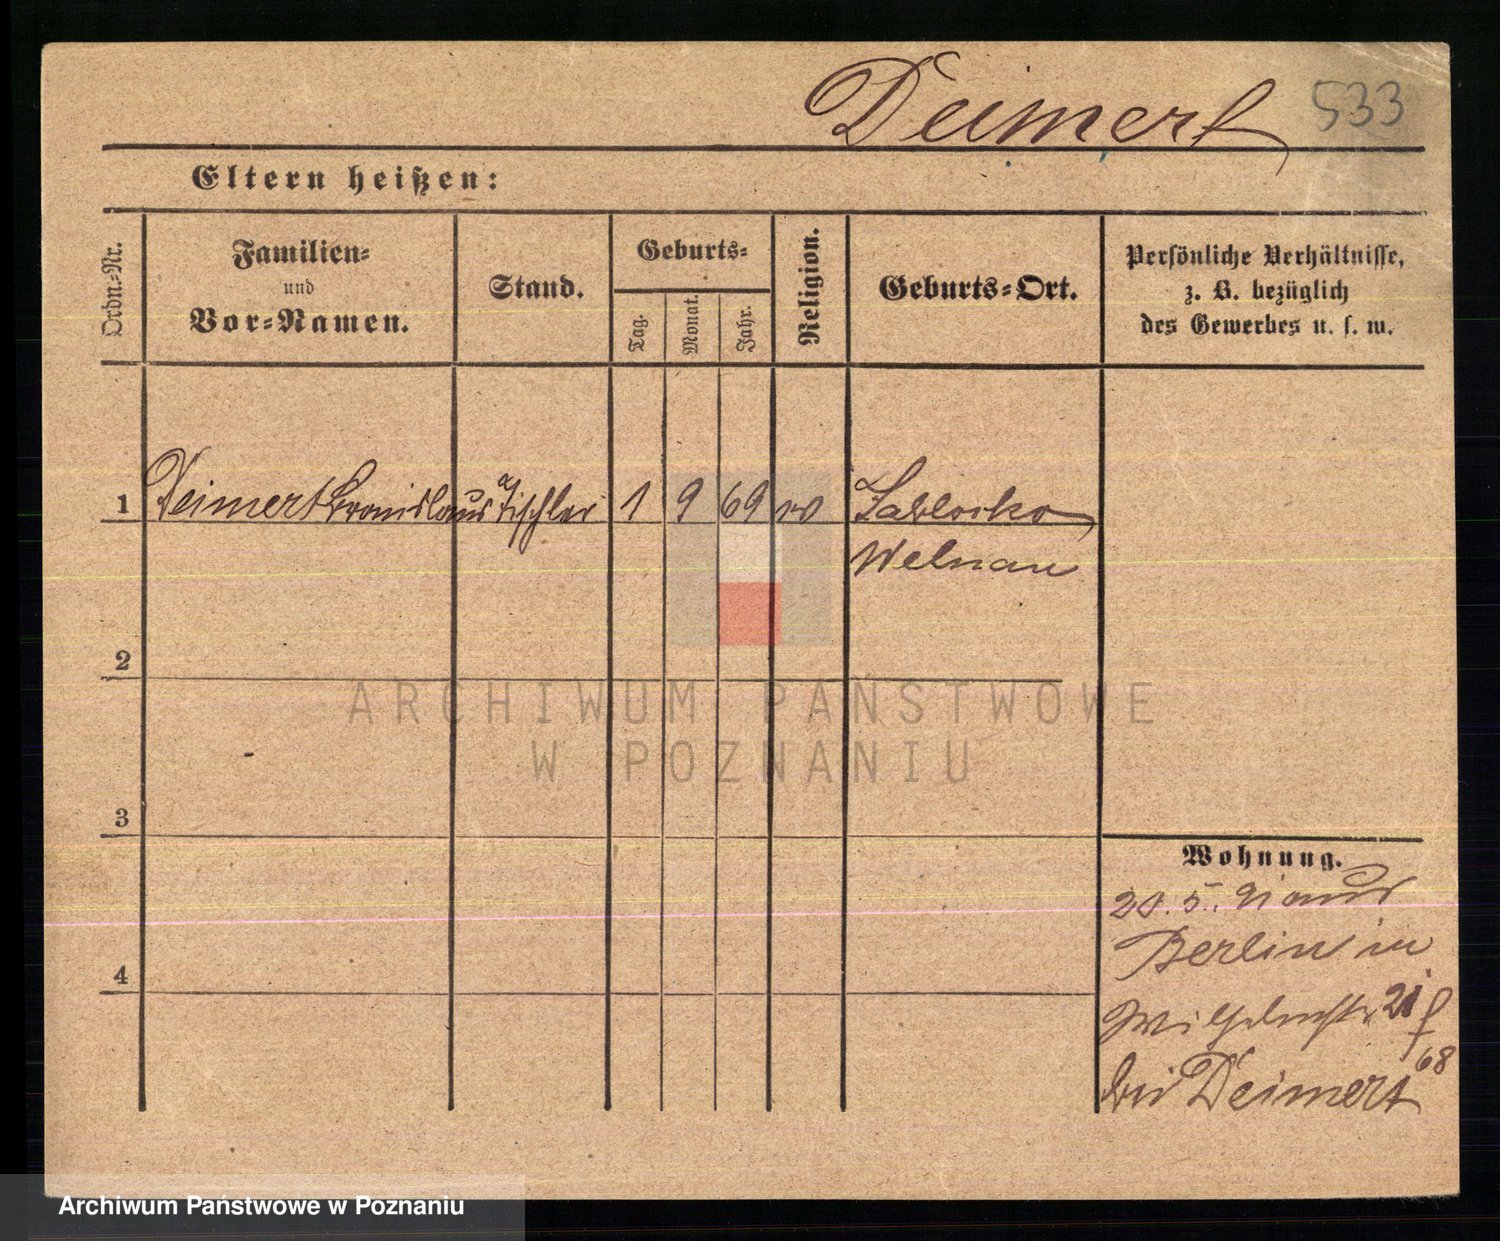 Deimert 533
Eltern heißen:
Ordn.-Nr.
Familien-
und
Vor-Namen.
Stand.
Geburts-
Tag.
Monat.
Jahr.
Religion.
Geburts-Ort.
Persönliche Verhältnisse,
z. B. bezüglich
des Gewerbes u. s. w.
1 Deimert Bronislaus Tischler 1 9 69
Welnau
2
3
4
Wohnung.
20. 5.
Berlin in
21
68
bei Deimert
ARCHIWUM PAŃSTWOWE
W POZNANIU
Archiwum Państwowe w Poznaniu